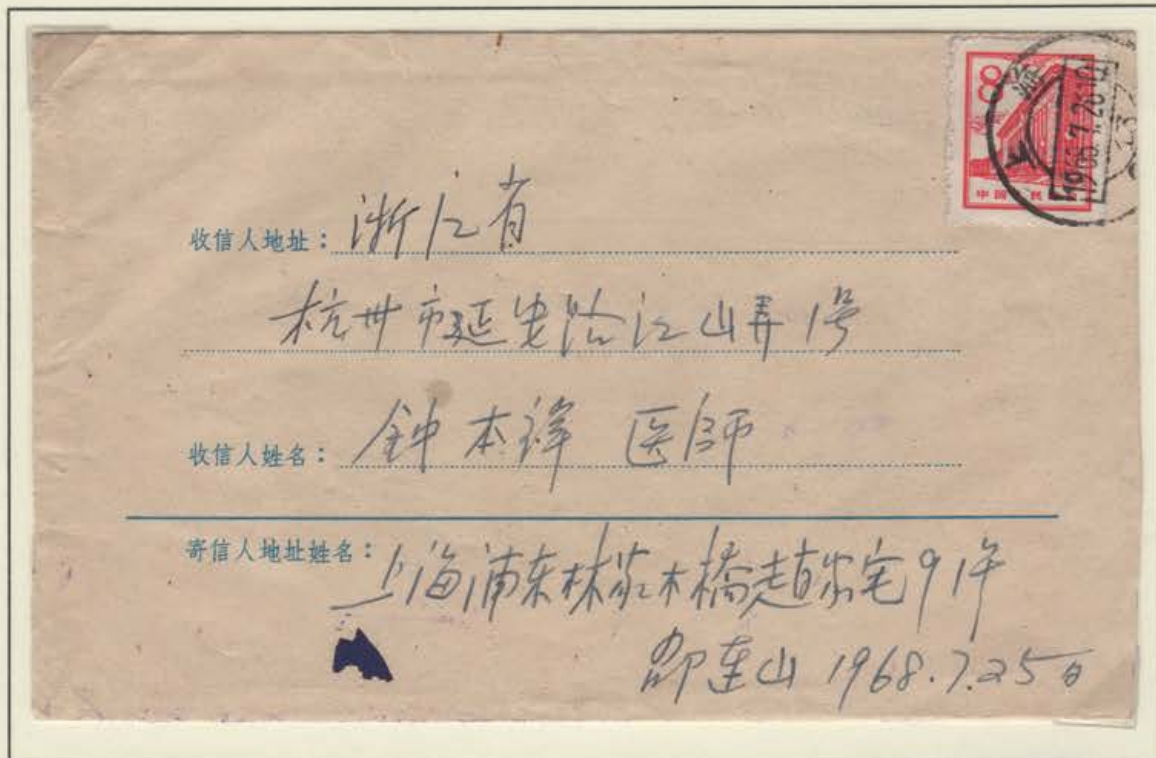 8
中国人民
上海
1968.7.26.10
收信人地址：浙江省
杭州市延安路江山弄1号
收信人姓名：钟本祥 医师
寄信人地址姓名：上海浦东林家木橋赵家宅91号
邵连山 1968.7.25日